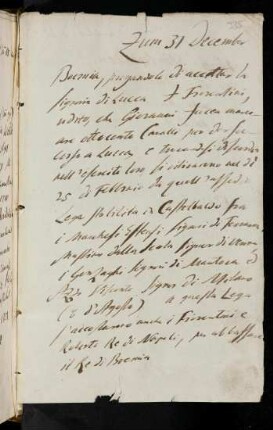 Zum 31 December
Boemia, pregandolo di accettar la
signoria di Lucca I Fiorentini,
udito, che Giovanni facea marci-
are ottocento Cavalli per dar soc-
corso a Lucca, e
nell' esercito loro si ritirarono nel dì
25 di Febbrajo da quell' assedio
Lega stabilita in Castelbaldo fra
i Marchesi Estensi Signori di Ferrara
Mastino dalla Scala Signor di Verona
i Gonzaghi Signori di Mantova ed
Azzo Visconte Signor di Milano
(8 d'Agosto) a questa Lega
s'accostarono anche i Fiorentini e
Roberto Re di Napoli, per abbassare
il Re di Boemia